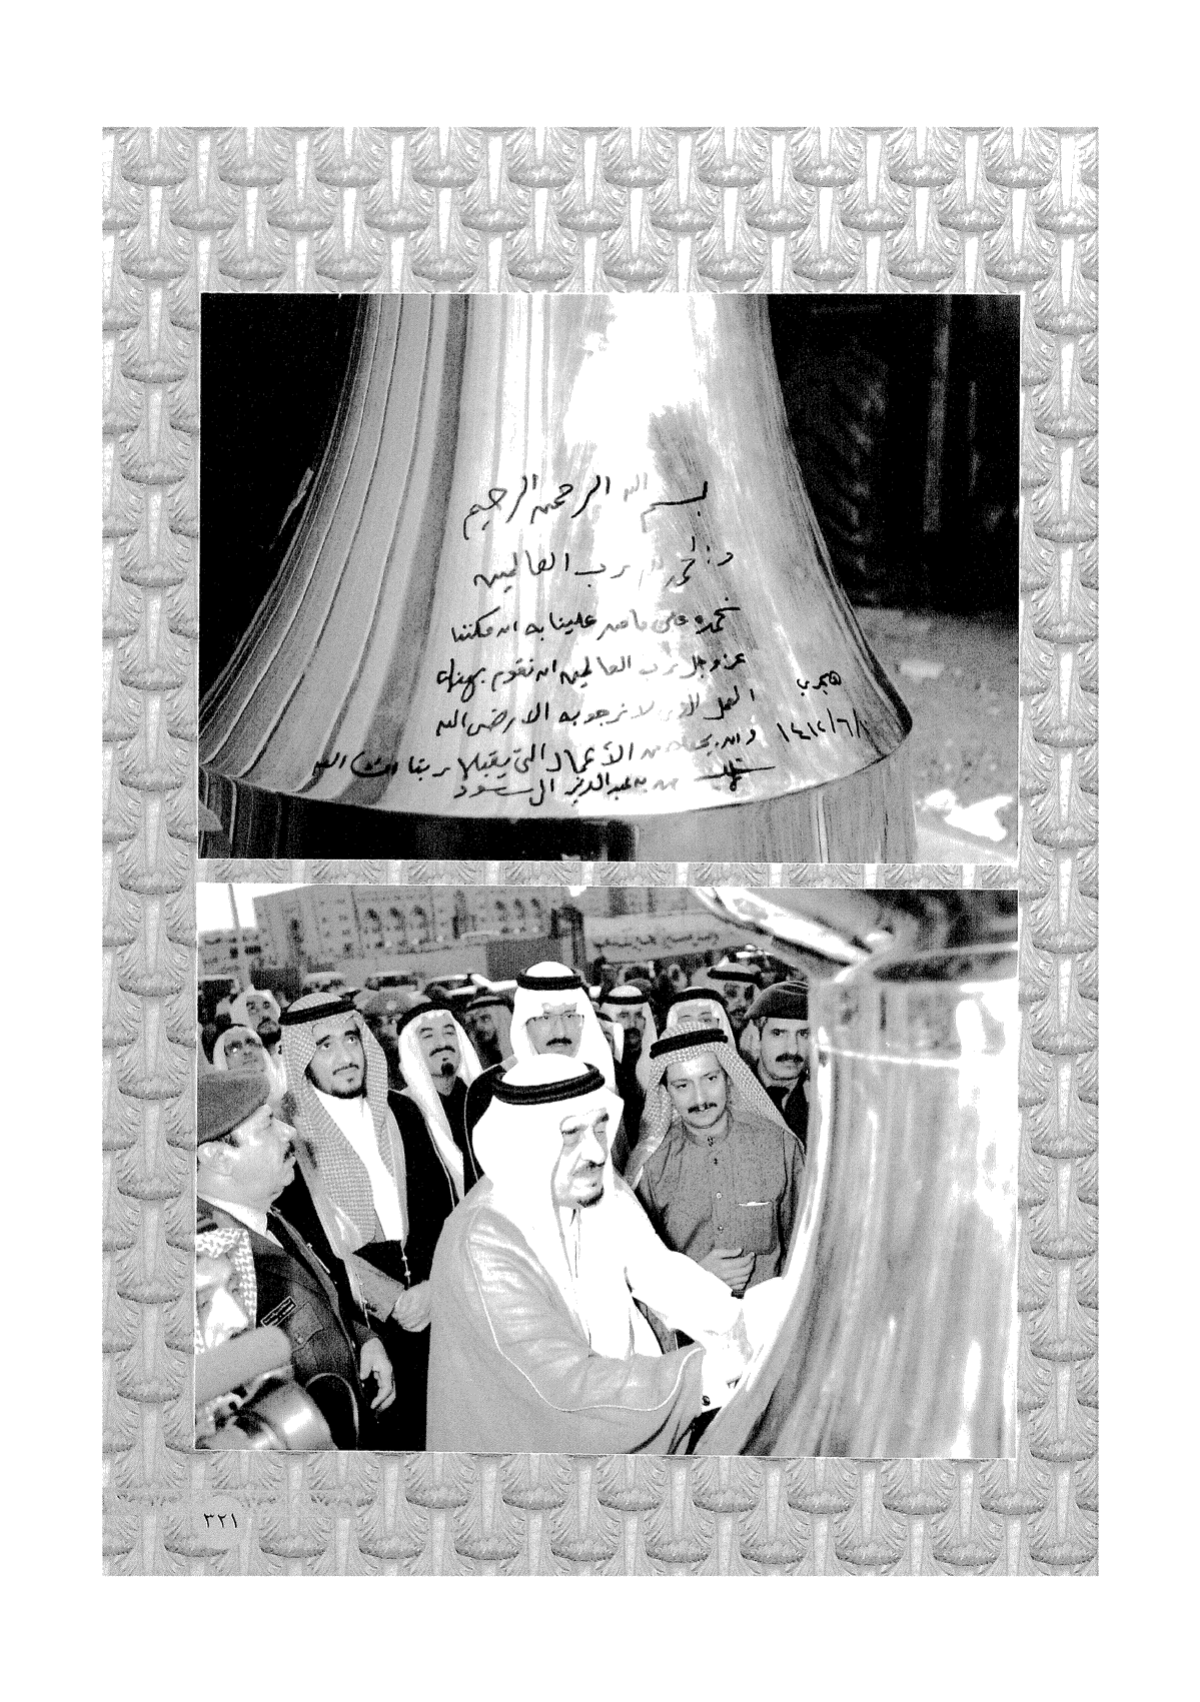 بسم الله الرحمن الرحيم
والحمد لله رب العالمين
نحمده على ما من علينا به ان مكننا
عز وجل رب العالمين ان نقوم بهذا
العمل الذي لا نرجو به الا رضى الله
وان يجعله من الأعمال التي يقبلها ربنا ان شاء الله
فهد بن عبدالعزيز ال سعود
هجري
٣٢١